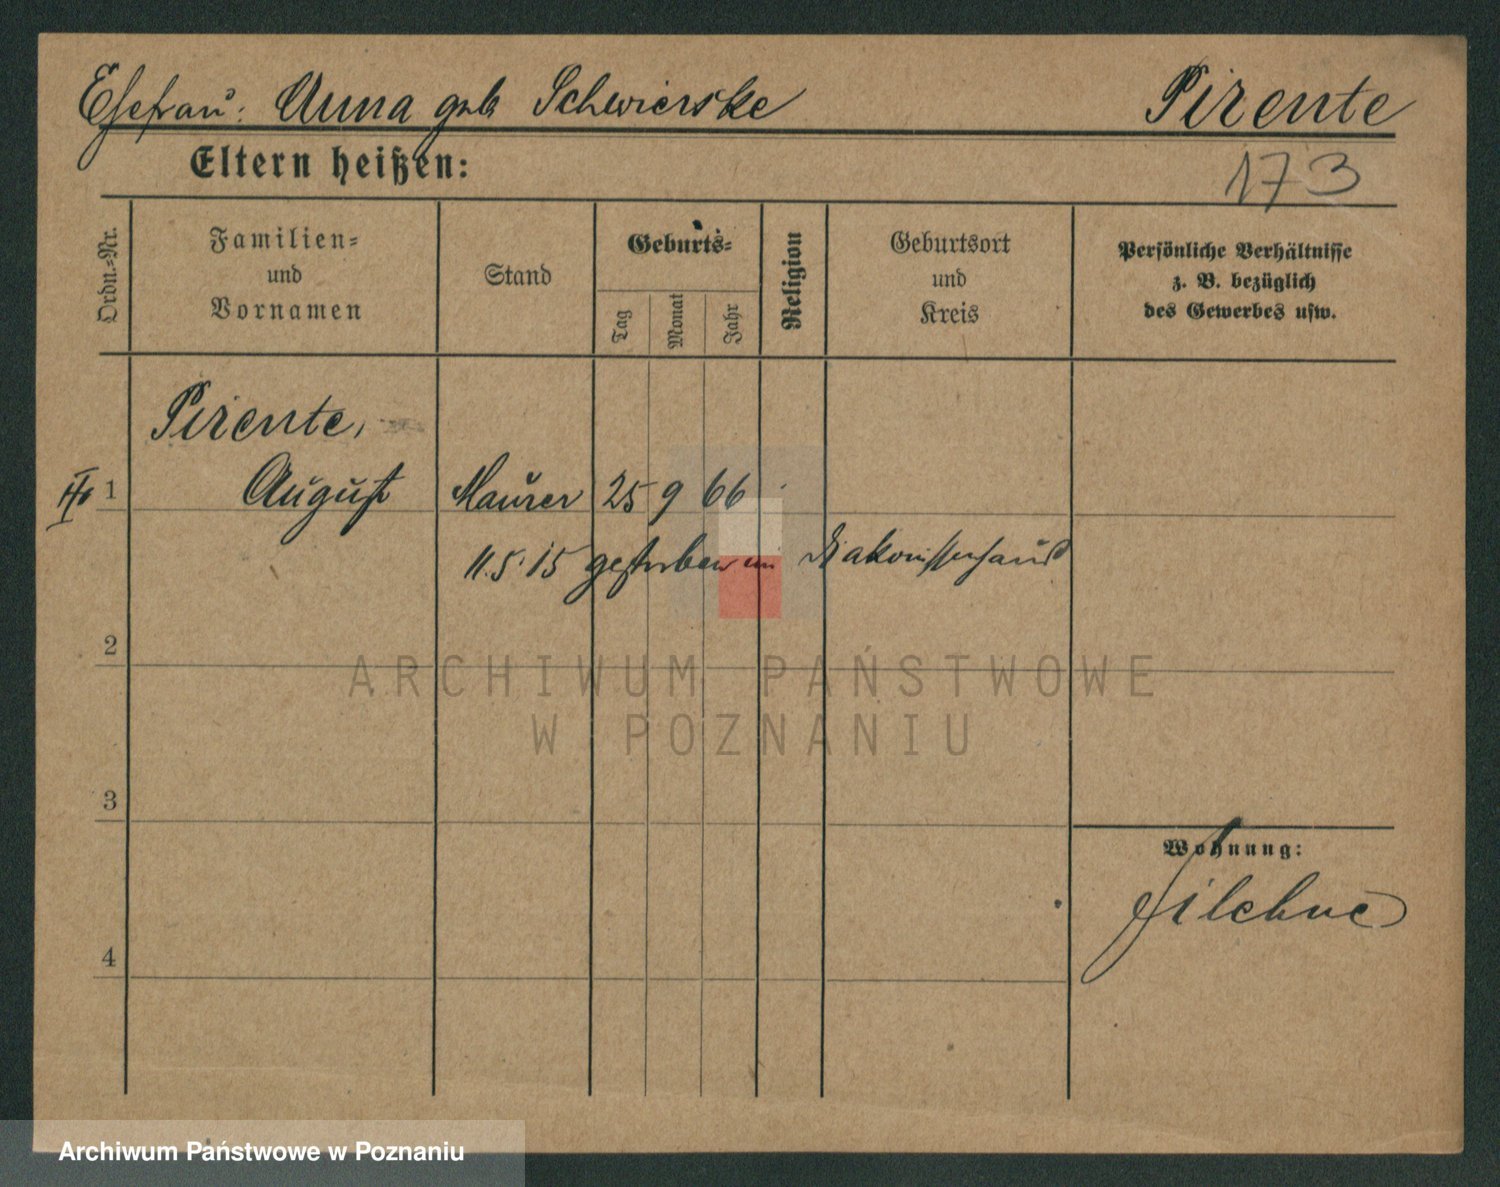 Ehefrau: Anna geb Schwierske
Pirente
Eltern heißen:
173
Ordn.-Nr.
Familien-
und
Vornamen
Stand
Geburts-
Tag
Monat
Jahr
Religion
Geburtsort
und
Kreis
Persönliche Verhältnisse
z. B. bezüglich
des Gewerbes usw.
Pirente,
1 August Maurer 25 9 66
11.5.15 gestorben im Diakonissenhaus
2
3
4
Wohnung:
Filehne
ARCHIWUM PAŃSTWOWE
W POZNANIU
Archiwum Państwowe w Poznaniu